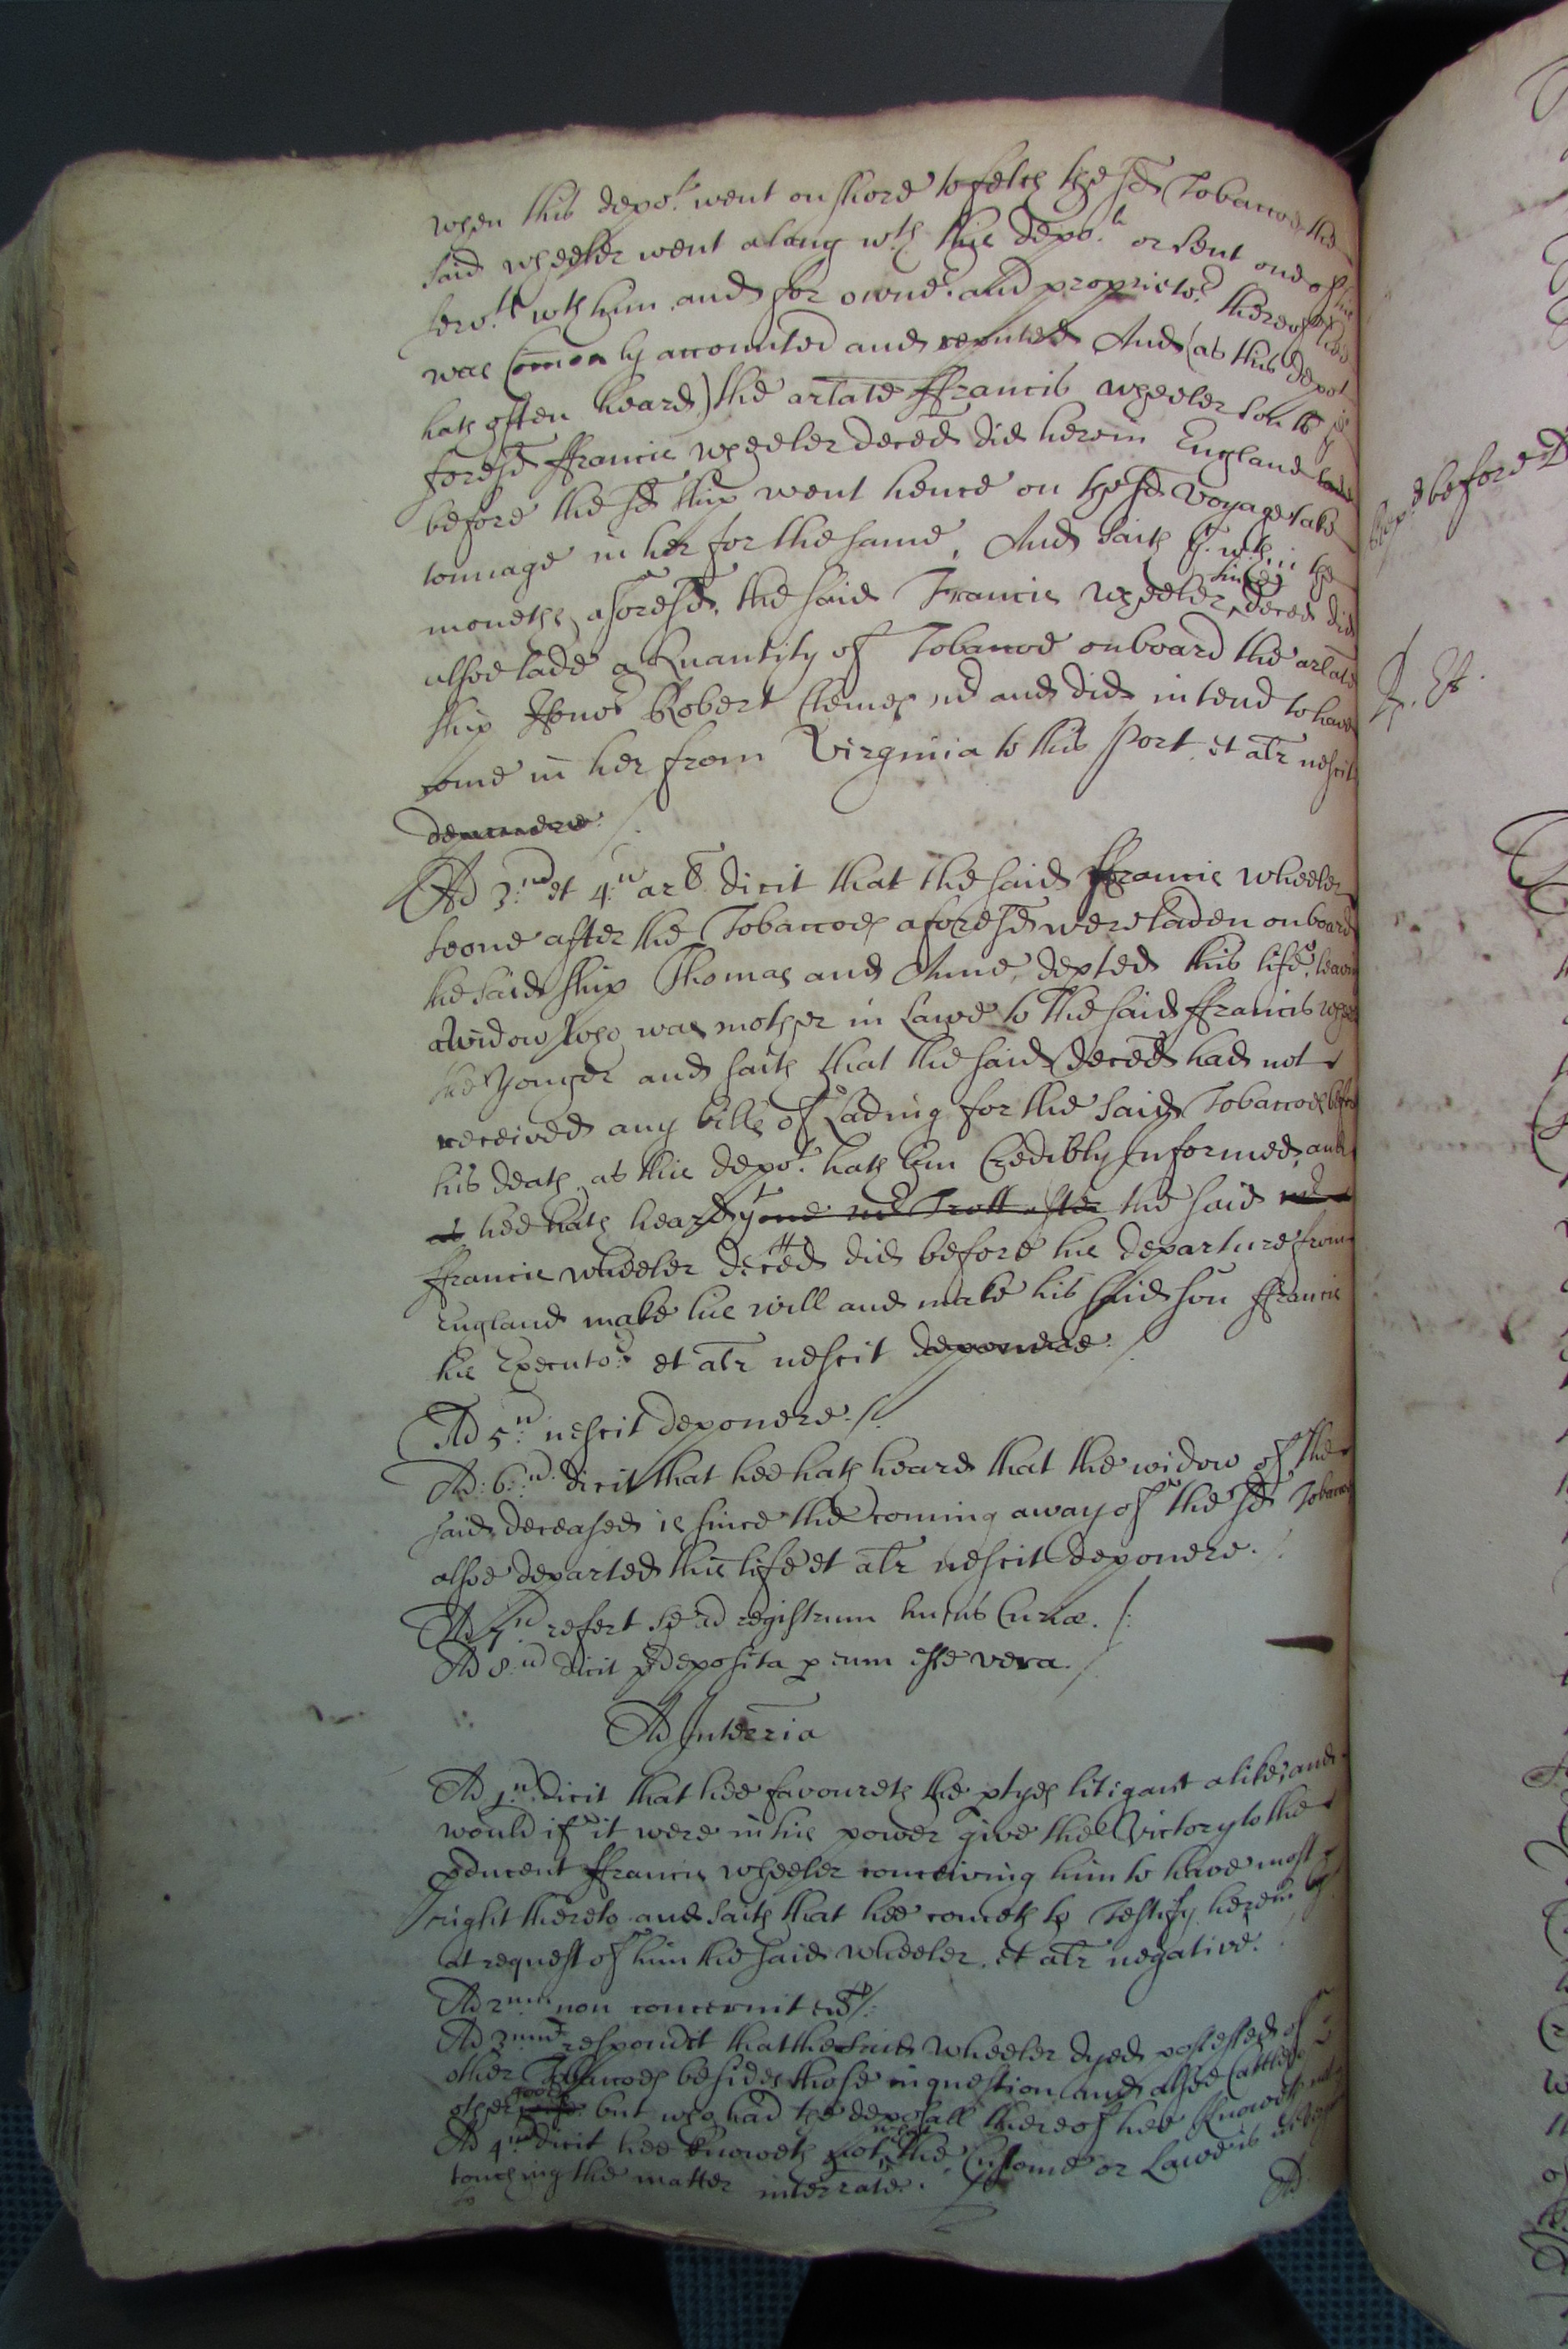 when this depot. went on shore to fetch the sd Tobaccoe the
said wheeler went along wth this depot. or sent one of his
servts wth him and for owner and proprietor thereof hee
was Comonly accounted and reputed And (as this depot
hath often heard) the arlate ffrancis wheeler son to ye
foresd ffrancis wheeler deced did herein England
before the sd ship went hence on the sd voyage take
tonnage in her for the same, And saith yt. wthin the
moneths aforesd, the said Francis wheeler since deced did
alsoe lade a Quantity of Tobaccoe onboard the arlate
ship Honor Robert Clemes mr and did intend to have
come in her from Virginia to this Port et alr nescit
deponere /.
Ad 3.um et 4.um arlos dicit that the said ffrancis wheeler
soone after the Tobaccoes aforesd were laden onboard
the said ship Thomas and Anne, depted this life, leaving
a widow who was mother in Lawe to the said ffrancis
the Yonger and saith that the said deced had not
received any bills of Lading for the said Tobaccoes before
his death as this depot. hath bin Credibly Informed, and
as hee hath heard yt one mr Trott after the said
ffrancis wheeler deced did before his departure from
England make his will and make his said son ffrancis
his Executor et alr nescit deponere /.
Ad 5.um nescit deponere. /.
Ad: 6.um. dicit that hee hath heard that the widow of the
said deceased is since the coming away of the sd Tobaccoes
alsoe departed this life et alr nescit deponere. /.
Ad 7.um refert se ad registrum huius Curiæ. /.
Ad 8.um dicit predeposita p eum esse vera. /
Ad Interria
Ad 1.um dicit that hee favoureth the ptyes litigant alike, and
would if it were in his power give the Victory to the
producent ffrancis wheeler conceiving him to have most
right thereto and saith that hee cometh to Testify herein
at request of him the said wheeler, et alr negative.
Ad 2um non concernit eum /.
Ad 3um respondit that the said wheeler dyed possessed of
other Tobaccoes besides those in question and alsoe Cattle
other goods but who had the deposall thereof hee knoweth not
Ad 4um dicit hee knoweth not what the Custome or Lawe is
touching the matter interrate. /.
Ad
before